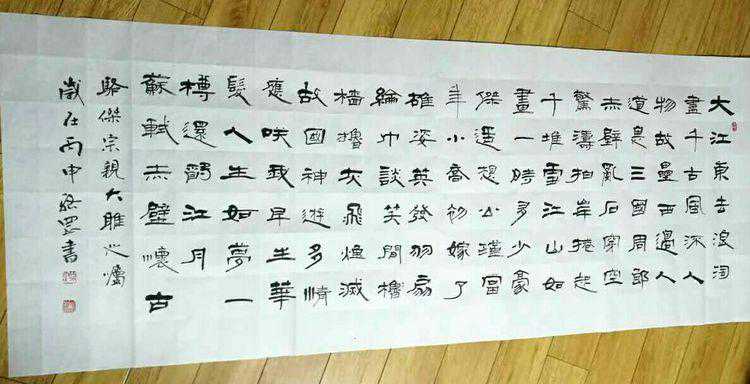 大江東去浪淘
盡千古風流人
物故壘西邊人
道是三國周郎
赤壁亂石穿空
驚濤拍岸捲起
千堆雪江山如
畫一時多少豪
傑遙想公瑾當
年小喬初嫁了
雄姿英發羽扇
綸巾談笑間櫓
檣櫓灰飛煙滅
故國神遊多情
應咲我早生華
髮人生如夢一
樽還酹江月
蘇軾赤壁懷古
駱傑宗親大雅之囑
歲在丙申駱書